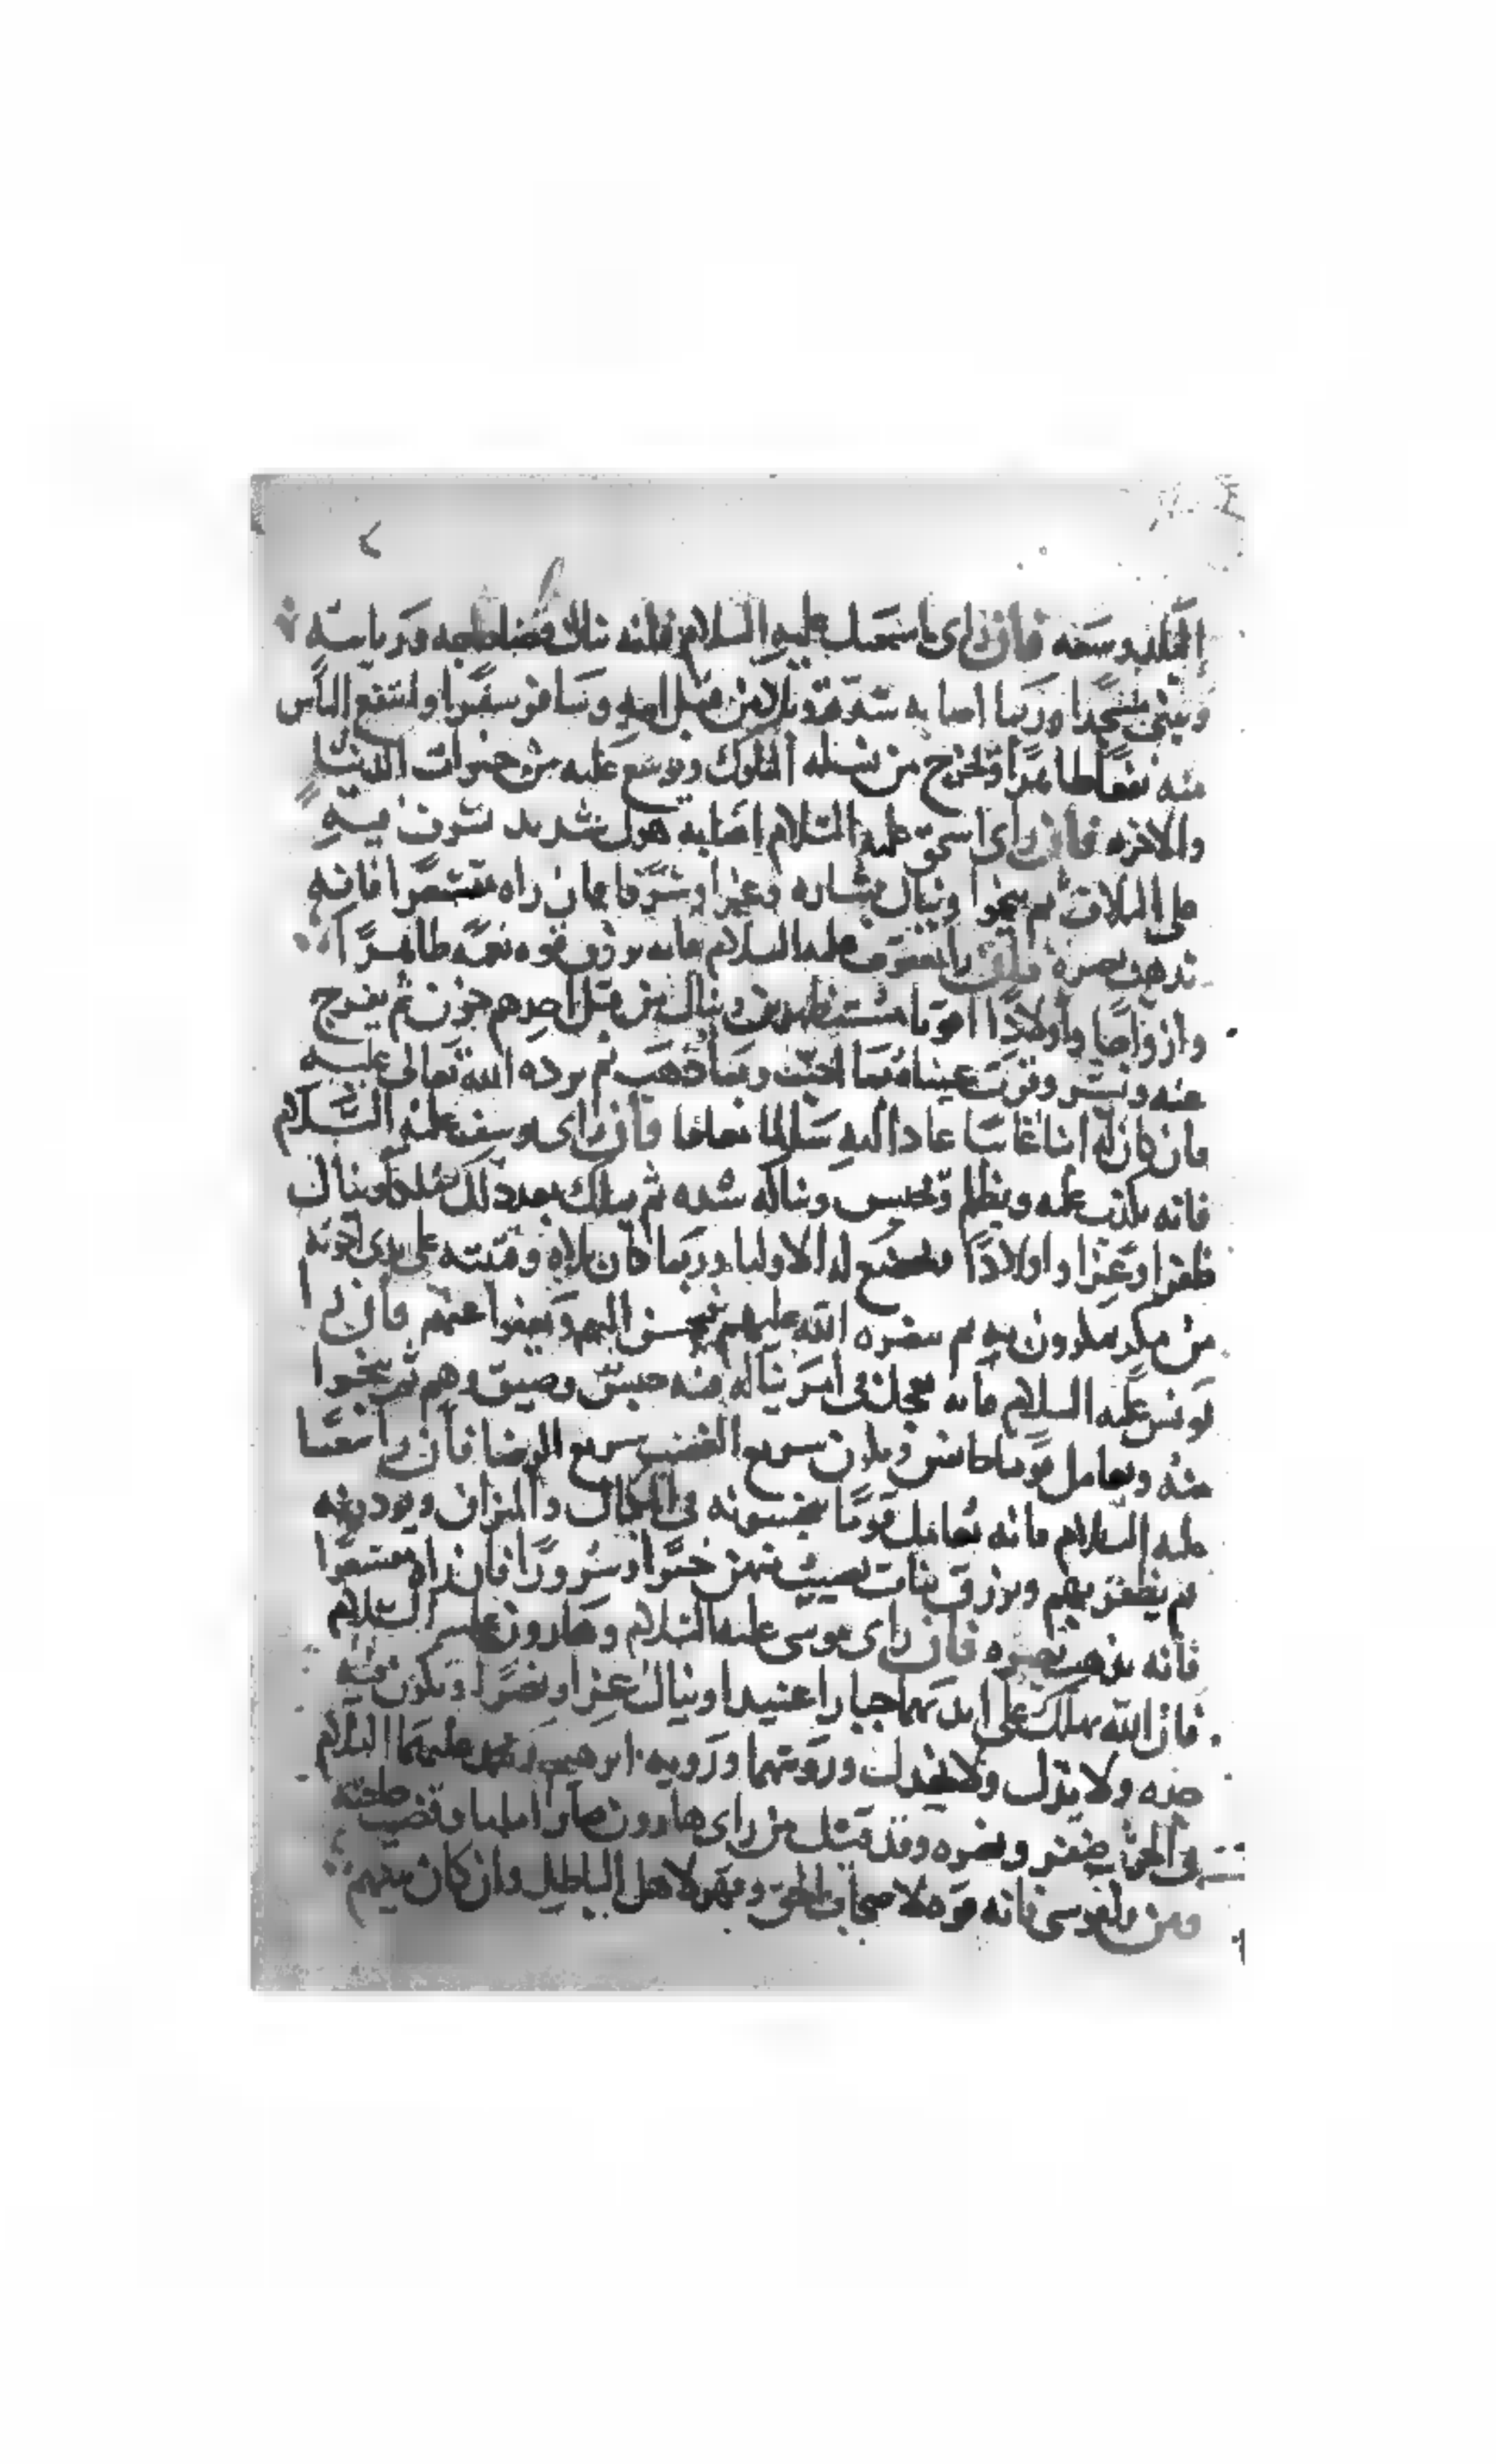 وسجنه فان راى اسمعيل عليه السلام فانه ينال فصاحه ورياسة
ويبنى مسجدا وربما اصابه شدة من قبل ابيه وسافر سفرا وانتفع الناس
منه نفعا طاهرا ويخرج من نسله الملوك ويوسع عليه من خيرات الدنيا
والاخره فان راى اسحق عليه السلام اصابه هول شديد شرف فيه
على الهلاك ثم ينجوا وينال بشاره وعزا وشرفا فان راه متغيرا فانه
يذهب بصره فان راى يعقوب عليه السلام فانه يرزق قوه ونعمه طاهرا
وازواجا واولادا اقويا مستظهرين وينال من قبل احدهم حزن ثم يفرج
عنه ويسر وتقر عيناه بما احب وبما ذهب ثم يرده الله تعالى عليه
فان كان له ابنا غايبا عاد اليه سالما معافا فان راى يوسف عليه السلام
فانه يكذب عليه ويظلم ويحبس ويناله شده ثم يملك بعد ذلك ملكا وينال
ظفرا وعزا واولادا ويخضع له الاوليا وربما كان بلاه وفتنته على يدى اخوته
من مكر يمكرون به ثم ينصره الله عليهم فيحسن اليهم ويعفوا عنهم فان راى
يونس عليه السلام فانه يعجل فى امر يناله منه حبس وضيق وهم ثم ينجوا
منه ويعامل قوما خاينين ويكون سريع الغضب سريع الرضا فان راى شعيبا
عليه السلام فانه يعامل قوما يبخسونه فى المكيال والميزان ويوذونه
ثم يظفر بهم ويرزق بنات يصيب منهن خيرا وسرورا فان راه متغيرا
فانه يذهب بصره فان راى موسى عليه السلام وهارون عليه السلام
فان الله يهلك على ايديهما جبارا عنيدا وينال عزا ونصرا ويكون فيه
حده ولا يذل ولا يخذل ورويتهما وروية ابرهيم ومحمد عليهما السلام
فى الحرب ظفر ونصره وقد قيل من راى هارون صار اماما
ومن راى موسى فانه قوه لاصحاب الحق وقهر لاهل الباطل وان كان بينهم